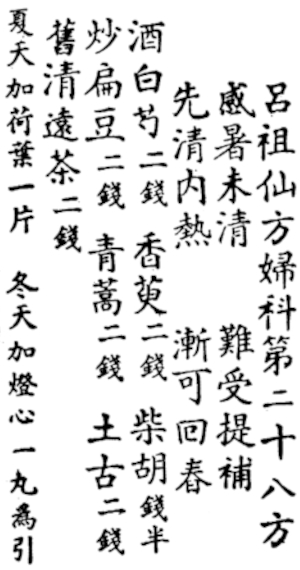 呂祖仙方婦科第二十八方
感暑未清　難受提補
先清內熱　漸可回春
酒白芍二錢　香茰二錢　柴胡錢半
炒扁豆二錢　青蒿二錢　土古二錢
舊清遠茶二錢
夏天加荷葉一片　冬天加燈心一丸為引